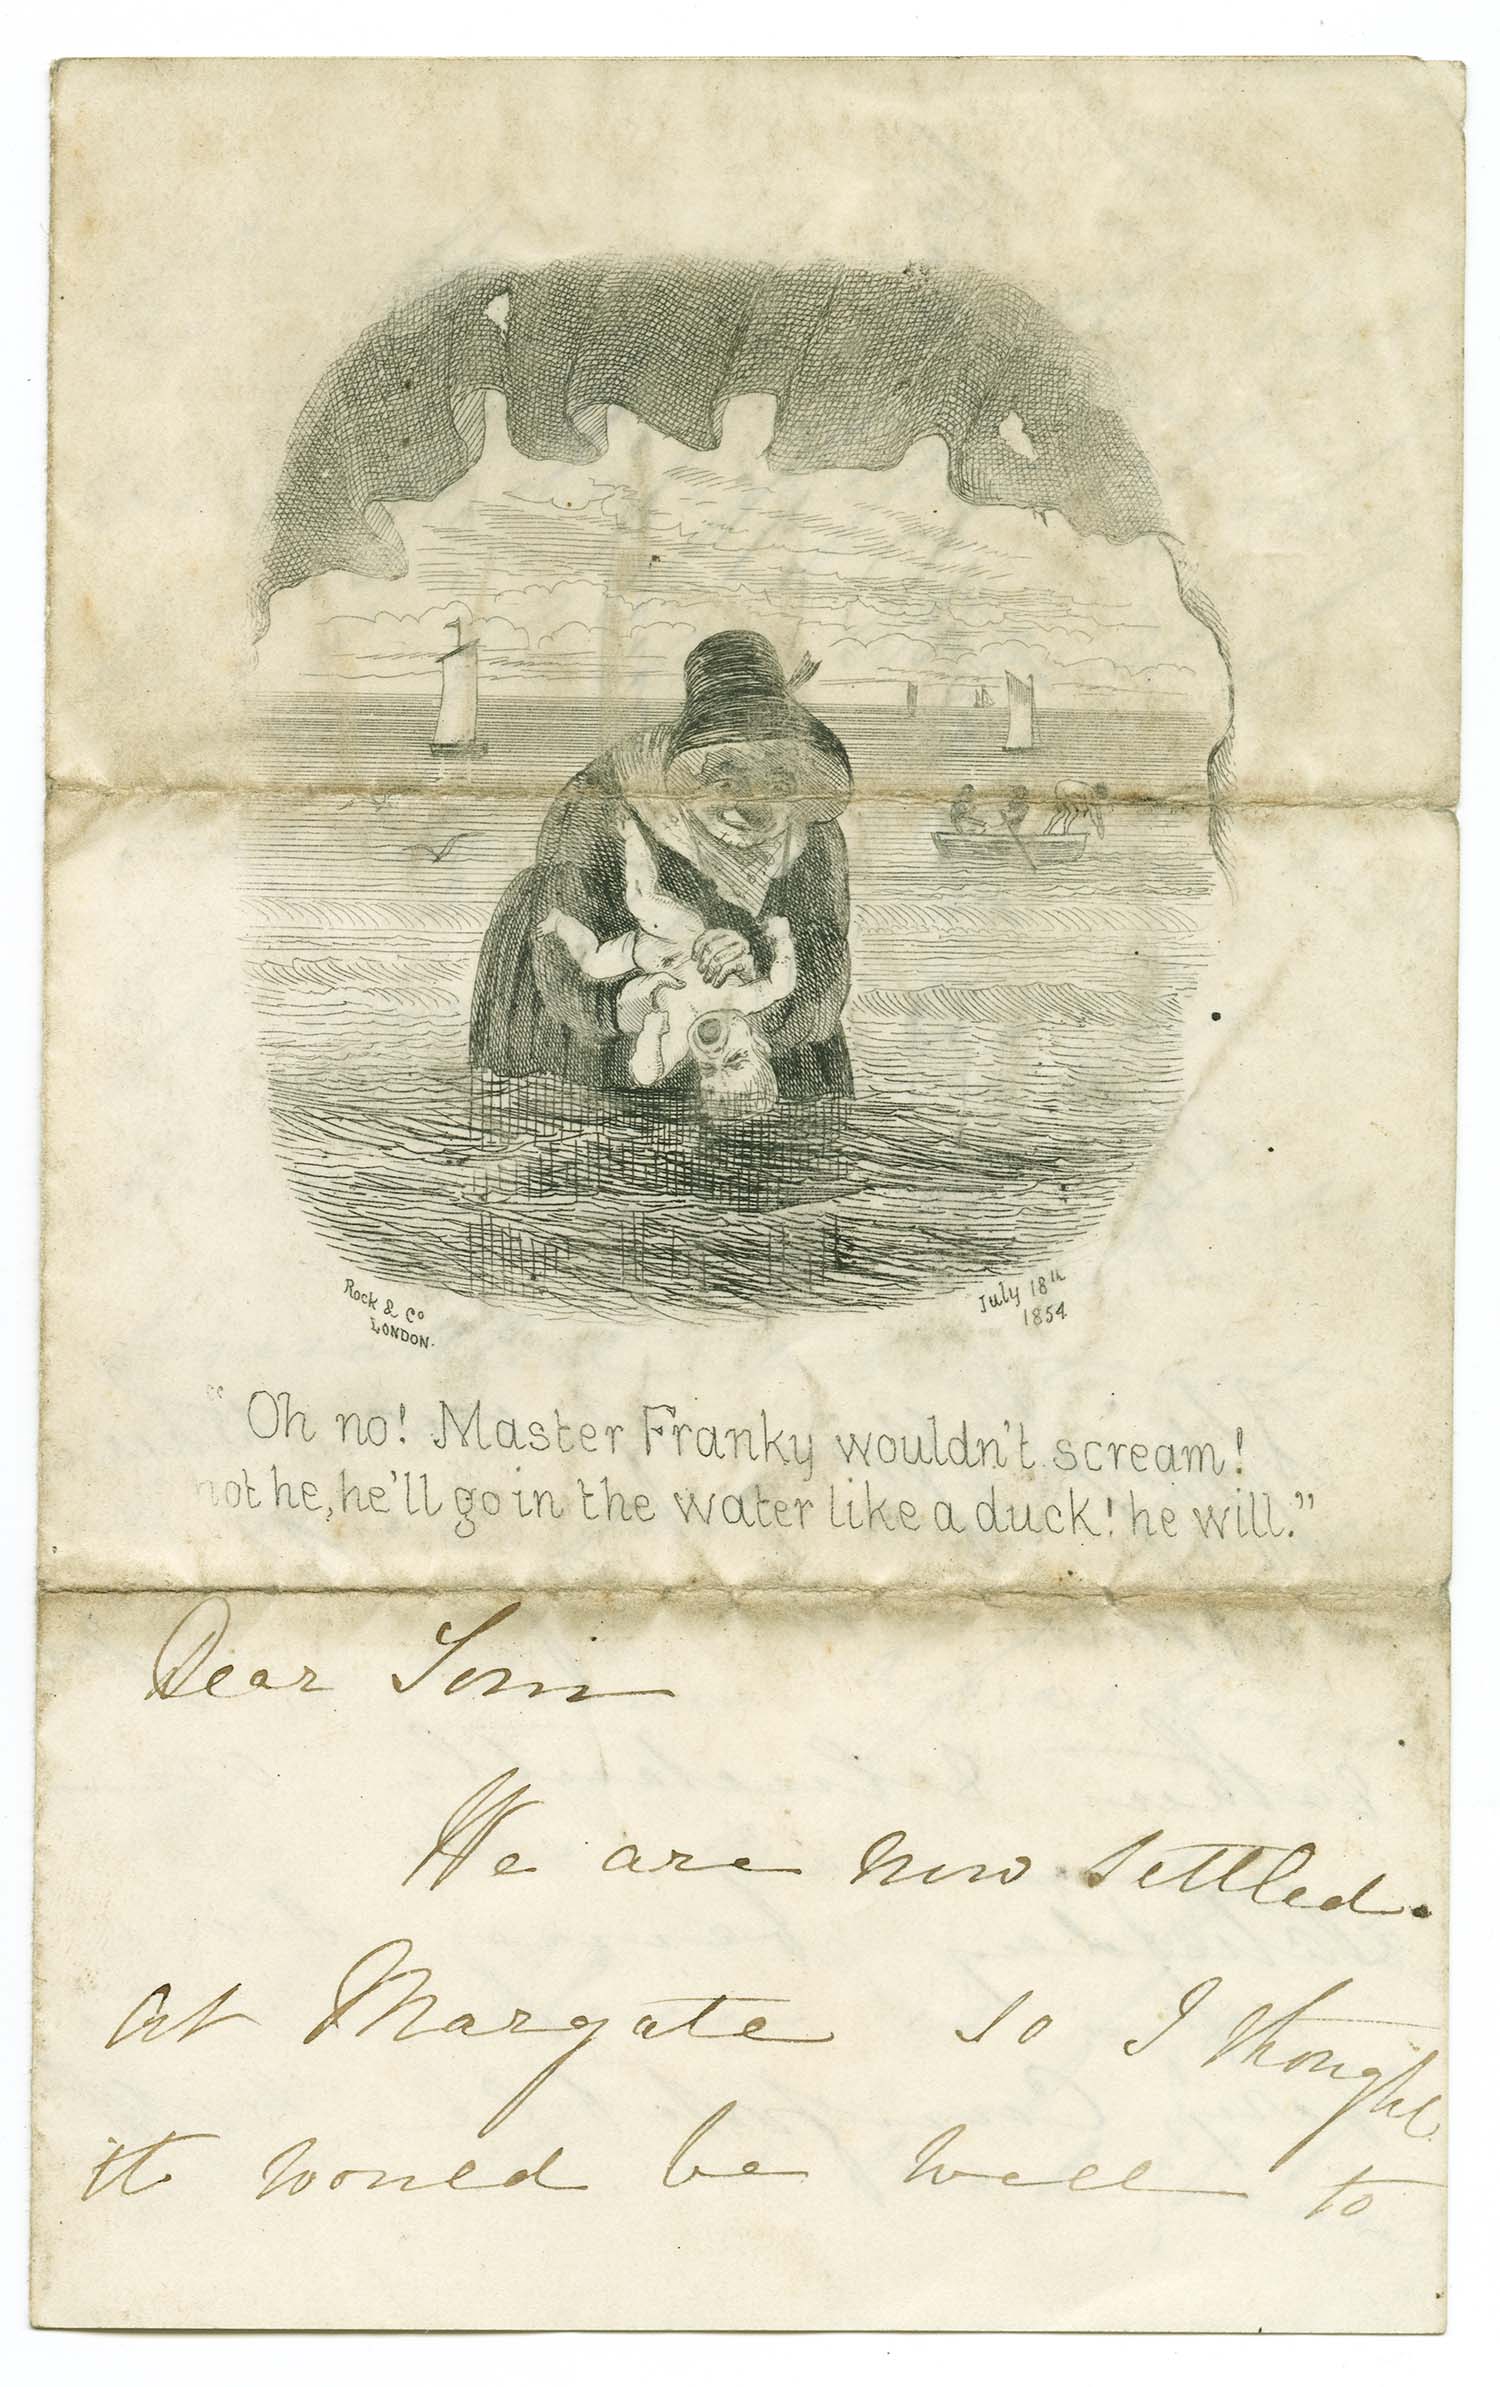 Rock & Co
LONDON.
July 18th
1854
"Oh no! Master Franky wouldn't scream!
not he, he'll go in the water like a duck! he will."
Dear Tom
We are now settled.
at Margate so I thought
it would be well to